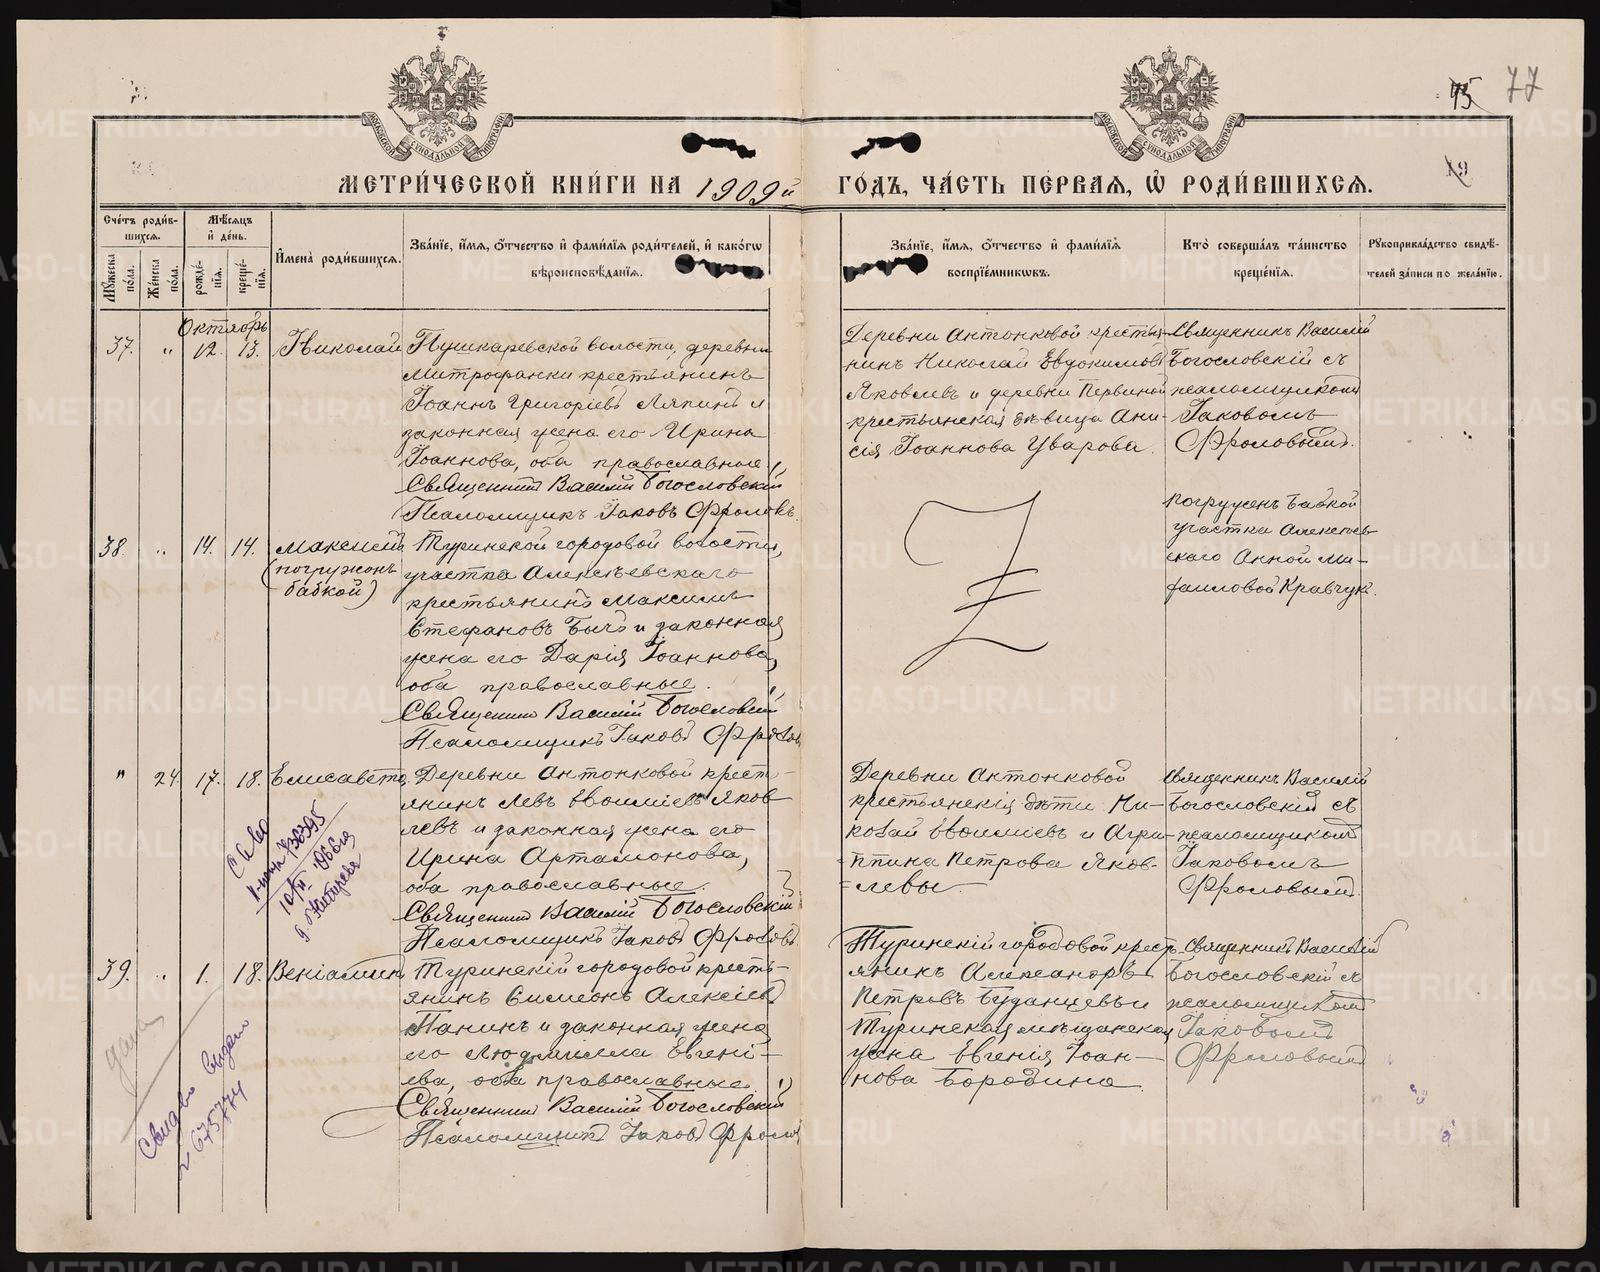 77
75
19
МЕТРИ́ЧЕСКОЙ КНИ́ГИ НА 1909й ГО́ДЪ, ЧА́СТЬ ПЕ́РВАЯ, Ѡ҆ РОДИ́ВШИХСЯ.
Сче́тъ роди́в-
шихся.
Мѣ́сяцъ
и҆ де́нь.
Мꙋ́жеска по́ла.
Же́нска по́ла.
рожде́нїя.
креще́нїя.
И҆мена̀ роди́вшихся.
Зва́нїе, и҆́мя, ѻ҆́тчество и҆ фами́лїя роди́телей, и҆ како́гѡ
вѣроисповѣ́данїя.
Зва́нїе, и҆́мя, ѻ҆́тчество и҆ фами́лїя
воспрїе́мникѡвъ.
Кто̀ соверша́лъ та́инство
креще́нїя.
Рꙋкоприкла́дство свидѣ́-
телей за́писи по жела́нїю.
Октябрь
37. " 12. 13. Николай
Пушкаревской волости, деревни
Митрофанки крестьянинъ
Іоаннъ Григоріевъ Ляпинъ и
законная жена его Ирина
Іоаннова, оба православные.
Священникъ Василій Богословскій
Псаломщикъ Іаковъ Фроловъ.
Деревни Антонковой крестья-
нинъ Николай Евдокимовъ
Яковлевъ и деревни Первиной
крестьянская дѣвица Ани-
сія Іоаннова Уварова.
Священникъ Василій
Богословскій съ
псаломщикомъ
Іаковомъ
Фроловымъ.
38. " 14. 14. Максимъ
(погружонъ
бабкой)
Туринской городовой волости,
участка Алексѣевскаго
крестьянинъ Максимъ
Стефановъ Бычъ и законная
жена его Дарія Іоаннова,
оба православные.
Священникъ Василій Богословскій
Псаломщикъ Іаковъ Фроловъ
Погружен бабкой
участка Алексѣев-
скаго Анной Ми-
хаиловой Кравчук.
" 24. 17. 18. Елисавета
Деревни Антонковой кресть-
янинъ Левъ Ѳомичевъ Яков
левъ и законная жена его
Ирина Артамонова,
оба православные.
Священникъ Василій Богословскій
Псаломщикъ Іаковъ Фроловъ
Деревни Антонковой
крестьянскія дѣти Ни-
колай и Агри-
ппина Петрова Яков-
левы.
Священникъ Василій
Богословскій съ
псаломщикомъ
Іаковомъ
Фроловымъ.
1966
39. " 1. 18. Веніаминъ
Туринскій городовой кресть-
янинъ Симеонъ Алексіевъ
Панинъ и законная жена
его Людмилла Евгені-
ева, оба православные.
Священникъ Василій Богословскій
Псаломщикъ Іаковъ Фроловъ
Туринскій городовой кресть
янинъ Александръ
Петровъ Буданцевъ и
Туринская мѣщанская
жена Евгенія Іоан-
нова Бородина.
Священникъ Василій
Богословскій съ
псаломщикомъ
Іаковомъ
Фроловымъ
дана
выдано
№ 675774
METRIKI.GASO-URAL.RU